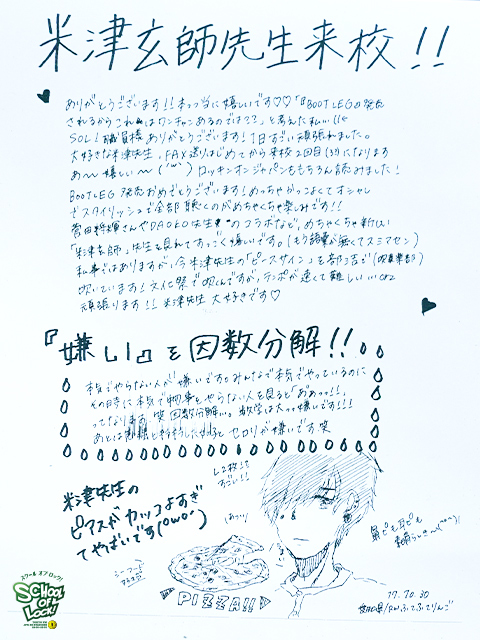 米津玄師先生来校!!
ありがとうございます!!本っ当に嬉しいです♡♡「『BOOTLEG』の発売
されるからこれはワンチャンあるのでは??」と考えた私…
SOL!職員様ありがとうございます!1日すごい頑張れました。
大好きな米津先生、FAX送りはじめてから来校2回目(3)になります
あ〜嬉しい〜 ロッキンオンジャパンももちろん読みました!
BOOTLEG発売おめでとうございます!めっちゃかっこよくてオシャレ
でスタイリッシュで全部聴くのがめちゃくちゃ楽しみです!!
菅田将暉さんやDAOKO先生とのコラボなど、めちゃくちゃ新しい
「米津玄師」先生を見れてすっごく嬉しいです。(もう語彙が無くてスミマセン)
私事ではありますが、今米津先生の「ピースサイン」を部活で(吹奏楽部)
吹いています!文化祭で吹くんですが、テンポが速くて難しい…orz
頑張ります!!米津先生大好きです♡
『嫌い』を因数分解!!
本気でやらない人が嫌いです。みんなで本気でやっているのに
その時に本気で物事をやらない人を見ると「あぁっ!!」
ってなります 笑 因数分解…。数学は大っっ嫌いです!!!
セロリが嫌いです 笑
米津先生の
ピアスがカッコよすぎ
てやばいです(OwO)
すごい!!
PIZZA!!
17.10.30
スクール オブ ロック!
SCHOOL
OF
LOCK!